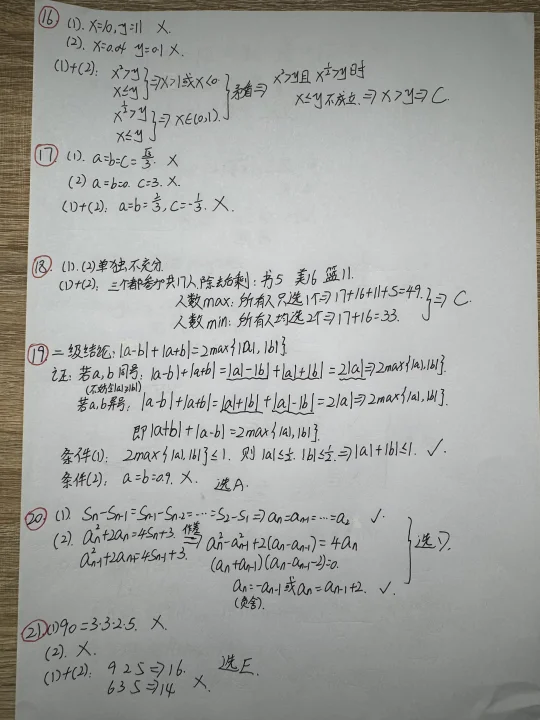 ⑯ (1). x=10, y=11 X.
(2). x=0.04 y=0.1 X.
(1)+(2): x²>y
x≤y }⇒x>1或x<0.
x^½>y
x≤y }⇒x∈(0,1). }矛盾⇒ x²>y且 x^½>y时
x≤y 不成立⇒x>y⇒C.
⑰ (1). a=b=c=√3/3. X
(2) a=b=0. c=3. X.
(1)+(2): a=b=2/3, c=-1/3. X.
⑱ (1). (2)单独不充分.
(1)+(2): 三个都参加共17人, 除去后剩: 书5 美16 篮11.
人数max: 所有人只选1个⇒17+16+11+5=49.
人数min: 所有人均选2个⇒17+16=33. }⇒C.
⑲ 二级结论: |a-b|+|a+b|=2max{|a|,|b|}
证: 若a,b同号: |a-b|+|a+b|=||a|-|b||+||a|+|b||=2|a|⇒2max{|a|,|b|}.
(不妨令|a|≥|b|)
若a,b异号: |a-b|+|a+b|=||a|+|b||+||a|-|b||=2|a|⇒2max{|a|,|b|}.
即|a+b|+|a-b|=2max{|a|,|b|}.
条件(1): 2max{|a|,|b|}≤1. 则|a|≤½. |b|≤½.⇒|a|+|b|≤1. ✓.
条件(2): a=b=0.9. X. 选A.
⑳ (1) Sn-Sn-1=Sn-1-Sn-2=……=S2-S1⇒an=an-1=…=a2 ✓.
(2). an²+2an=4Sn+3. 作差⇒ an²-an-1²+2(an-an-1)=4an
an-1²+2an-1=4Sn-1+3. (an+an-1)(an-an-1-2)=0.
an=-an-1或an=an-1+2. ✓.
(负舍). }选D.
㉑ (1)90=3·3·2·5. X.
(2). X.
(1)+(2): 9 2 5⇒16. 选E.
6 3 5⇒14 X.